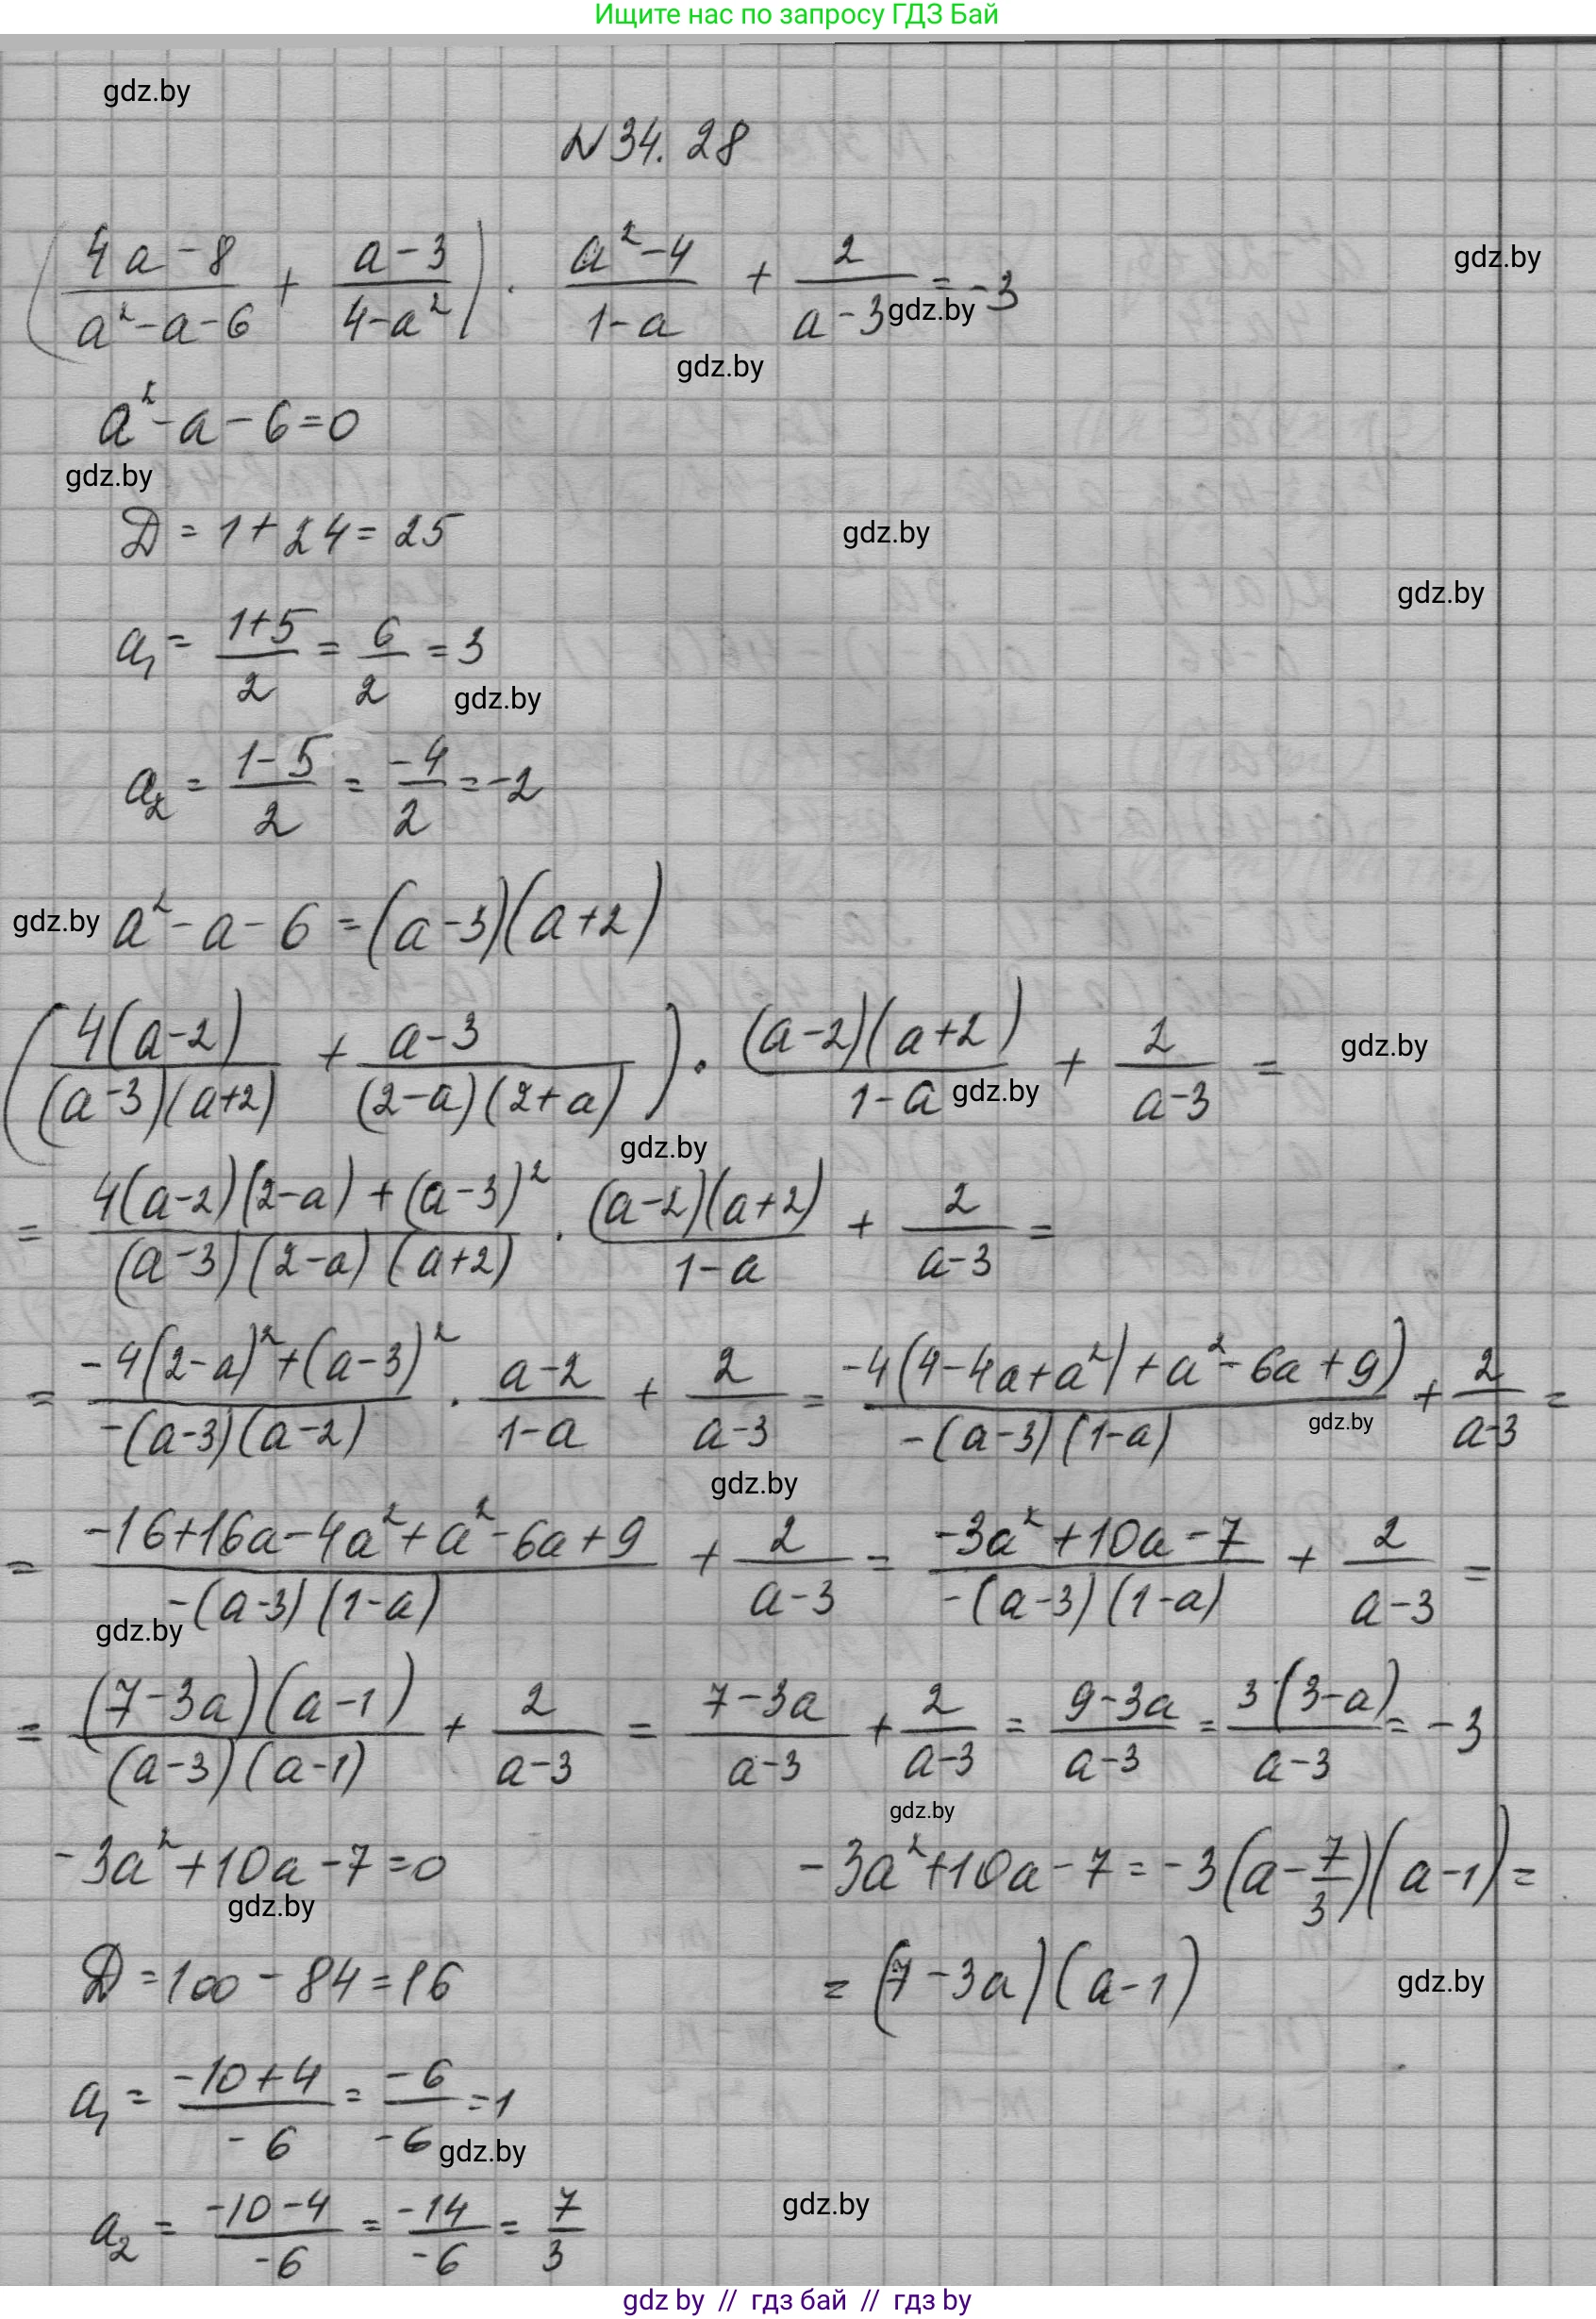 Ищите нас по запросу ГДЗ Бай
gdz.by
N 34. 28
gdz.by
(4a-8/(a²-a-6) + (a-3)/(4-a²)) · (a²-4)/(1-a) + 2/(a-3) = -3
gdz.by
gdz.by
a²-a-6=0
gdz.by
D = 1+24 = 25
gdz.by
gdz.by
a₁ = (1+5)/2 = 6/2 = 3
gdz.by
a₂ = (1-5)/2 = -4/2 = -2
gdz.by
a²-a-6 = (a-3)(a+2)
(4(a-2)/((a-3)(a+2)) + (a-3)/((2-a)(2+a))) · (a-2)(a+2)/(1-a) + 2/(a-3) =
gdz.by
gdz.by
gdz.by
= (4(a-2)(2-a)+(a-3)²)/((a-3)(2-a)(a+2)) · (a-2)(a+2)/(1-a) + 2/(a-3) =
= (-4(2-a)²+(a-3)²)/(-(a-3)(a-2)) · (a-2)/(1-a) + 2/(a-3) = (-4(4-4a+a²)+a²-6a+9)/(-(a-3)(1-a)) + 2/(a-3) =
gdz.by
gdz.by
= (-16+16a-4a²+a²-6a+9)/(-(a-3)(1-a)) + 2/(a-3) = (-3a²+10a-7)/(-(a-3)(1-a)) + 2/(a-3) =
gdz.by
= (7-3a)(a-1)/((a-3)(a-1)) + 2/(a-3) = (7-3a)/(a-3) + 2/(a-3) = (9-3a)/(a-3) = 3(3-a)/(a-3) = -3
gdz.by
-3a²+10a-7=0
-3a²+10a-7 = -3(a-7/3)(a-1) =
gdz.by
D = 100-84 = 16
= (7-3a)(a-1)
gdz.by
a₁ = (-10+4)/-6 = -6/-6 = 1
gdz.by
a₂ = (-10-4)/-6 = -14/-6 = 7/3
gdz.by
gdz by // гдз бай // гдз by